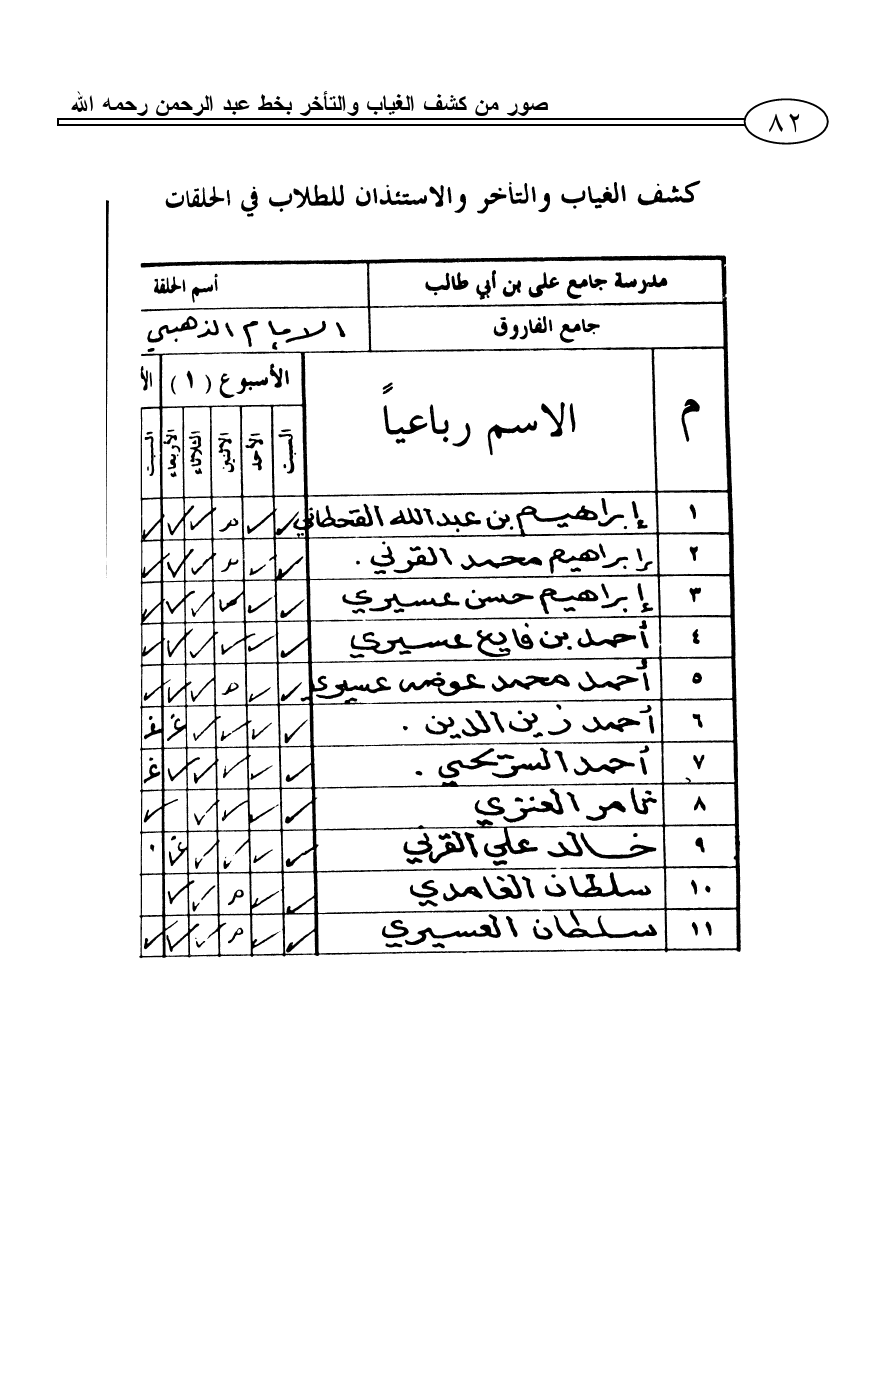 صور من كشف الغياب والتأخر بخط عبد الرحمن رحمه الله
٨٢
كشف الغياب والتأخر والاستئذان للطلاب في الحلقات
مدرسة جامع على بن أبي طالب أسم الحلقة
جامع الفاروق الإمام الذهبي
م الاسم رباعياً الأسبوع ( ١ ) الأ
السبت الأحد الاثنين الثلاثاء الأربعاء السبت
١ إبراهيم بن عبدالله القحطاني ✓ ✓ م ✓ ✓ ✓
٢ إبراهيم محمد القرني . ✓ ✓ م ✓ ✓ ✓
٣ إبراهيم حسن عسيري ✓ ✓ ✓ ✓ ✓
٤ أحمد بن فايع عسيري ✓ ✓ ✓ ✓ ✓ ✓
٥ أحمد محمد عوضه عسيري ✓ ✓ م ✓ ✓ ✓
٦ أحمد زين الدين . ✓ ✓ ✓ ✓ غ غ
٧ أحمد السريحي . ✓ ✓ ✓ ✓ ✓ غ
٨ ثامر العنزي ✓ ✓ ✓ ✓ ✓
٩ خالد علي القرني ✓ ✓ ✓ ✓ غ .
١٠ سلطان الغامدي ✓ ✓ م ✓ ✓
١١ سلطان العسيري ✓ ✓ م ✓ ✓ ✓